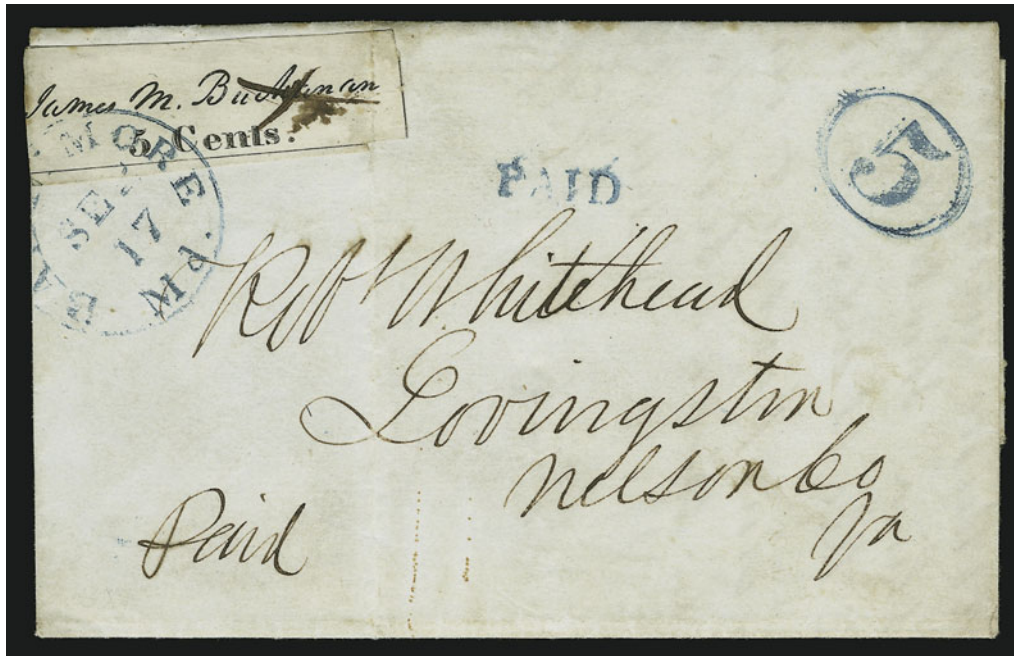 James M. Buchanan
5 Cents.
BALTIMORE Md.
SEP
17
PAID
5
Robt Whitehead
Lovingston
Nelson Co
Va
Paid